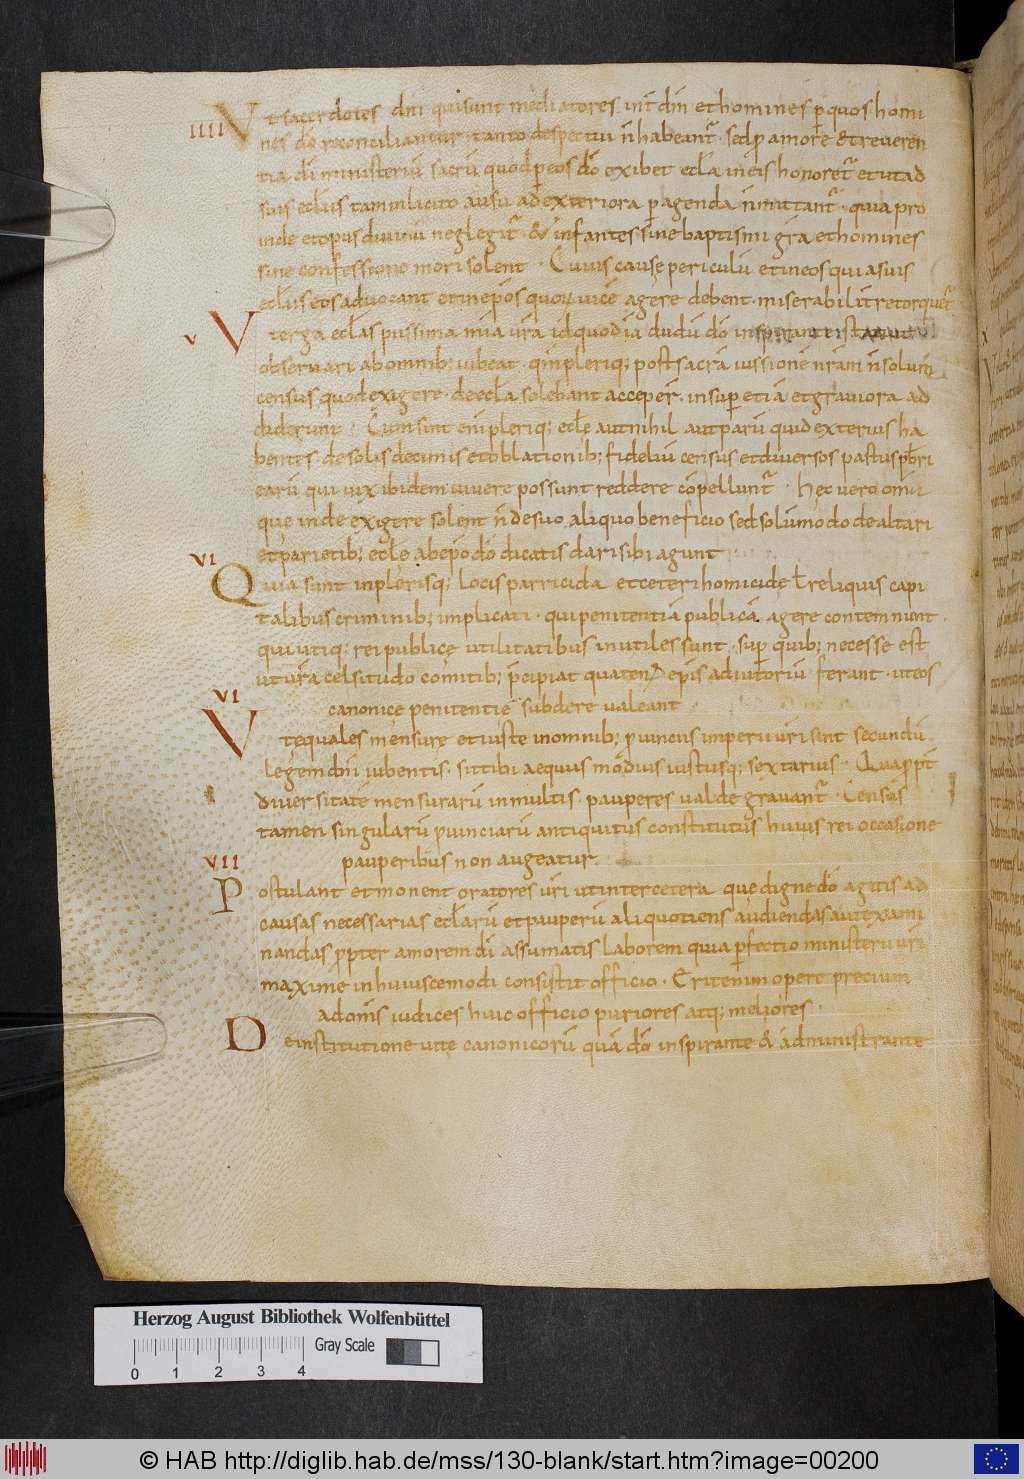 IIII Vt sacerdotes dn̄i qui sunt mediatores int̄ dm̄ et homines p quos homi
nes dō reconciliantur. tanto despectui n̄ habeant̄. sed ꝓ amore & reveren
tia dī ministeriū sacrū quod p eos dō exibet eccła in eis honoret̄ et ut ad
suis eccłiis tam inlicito ausu ad exteriora pagenda n̄ mittant̄. quia pro
inde et opus divinū neglegit̄. & infantes sine baptismi gr̄a et homines
sine confessione mori solent. Cuius cause periculū et in eos qui a suis
eccłiis eos advocant et in ep̄os quorū vice agere debent. miserabilit̄ retorquet̄
V Vt erga eccłas piissima mīa vr̄a id quod iā dudū dō inspirante
observari ab omnib; iubeat. qm̄ pleriq; post sacrā iussionē vr̄am n̄ solum
census quod exigere. de eccła solebant acceper̄. insup etiā et graviora ad
diderunt. Cum sint eni pleriq; eccłe aut nihil aut parū quid exterius ha
bentes. de solis decimis et oblationib; fideliū census et diversos pastus pb̄ri
earū qui vix ibidem vivere possunt reddere cōpellunt̄. Hęc vero omīa
que inde exigere solent n̄ de suo aliquo beneficio sed solummodo de altari
et parietib; eccłe ab ep̄o dō dicatis dari sibi agunt
VI Quia sunt in plerisq; locis parricida et ceteri homicide ł reliquis capi
talibus criminib; implicati. qui penitentiā publicā agere contemnunt.
qui utiq; rei publicę utilitatibus inutiles sunt. sup quib; necesse est
ut vr̄a celsitudo comitib; p̄cipiat quaten; ep̄is adiutoriū ferant. ut eos
canonice penitentię subdere valeant
VI Vt equales mensurę et iuste in omnib; ꝓvinciis imperii vr̄i sint secundū
legem dn̄i iubentis. sit tibi aequus modius iustusq; sextarius. Qua ppt̄
diversitatē mensurarū in multis. pauperes valde gravant̄. Census
tamen singularū ꝓvinciarū antiquitus constitutus huius rei occasione
pauperibus non augeatur.
VII Postulant et monent oratores vr̄i ut inter cetera que digne dō agitis ad
causas necessarias eccłarū et pauperū aliquotiens audiendas aut exami
nandas ppter amorem dī assumatis laborem quia pfectio ministerii vr̄i
maxime in huiuscemodi consistit officio. Erit enim opere precium
ad om̄s iudices huic officio puriores atq; meliores.
De institutione vite canonicorū quā dō inspirante & administrante
Herzog August Bibliothek Wolfenbüttel
Gray Scale
0 1 2 3 4
© HAB http://diglib.hab.de/mss/130-blank/start.htm?image=00200